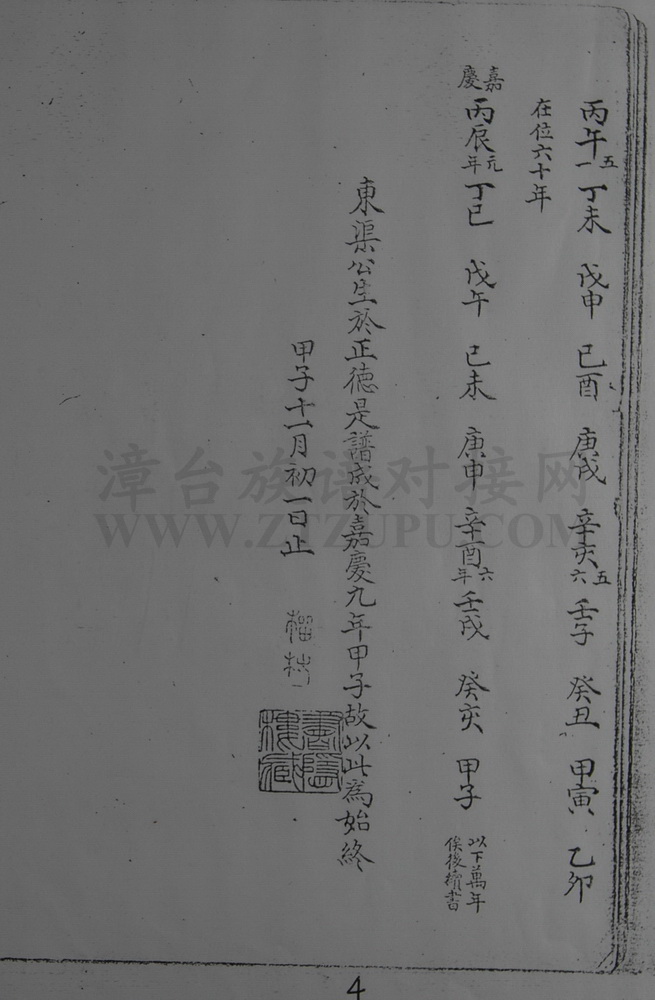 丙午五一丁未 戊申 已酉 庚戌 辛亥五六壬子 癸丑 甲寅 乙卯
在位六十年
嘉慶丙辰元年丁巳 戊午 已未 庚申 辛酉六年壬戌 癸亥 甲子以下萬年俟後續書
東渠公生於正德是譜成於嘉慶九年甲子故以此為始終
甲子十一月初一日止
漳台族谱对接网
WWW.ZTZUPU.COM
4